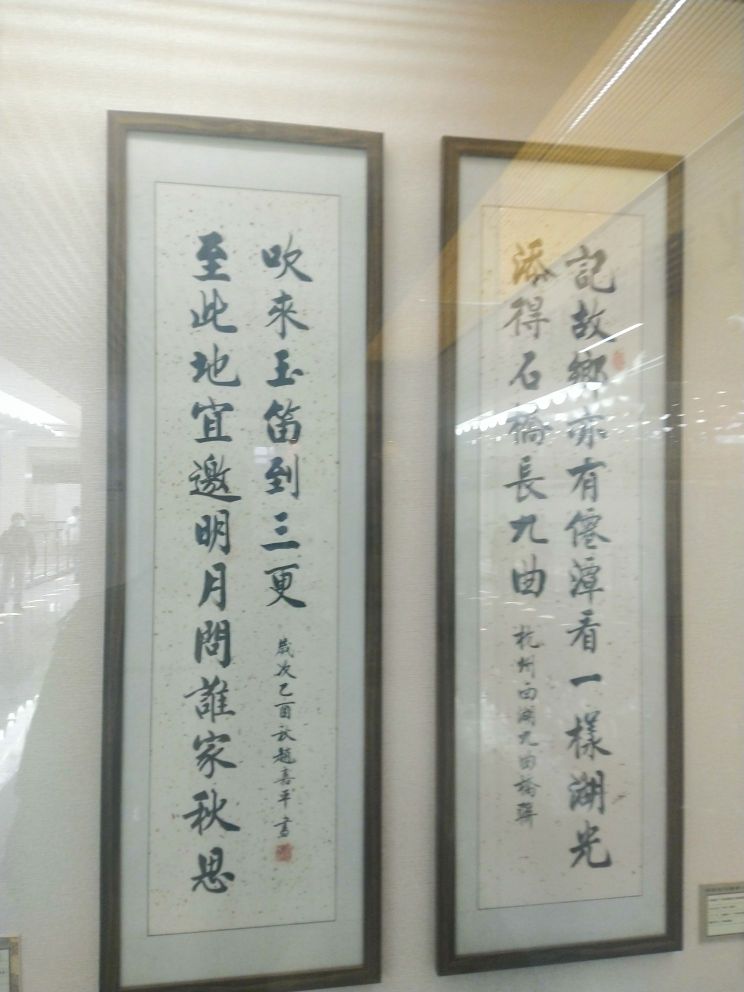 記故鄉亦有僊潭看一樣湖光
添得石橋長九曲
杭州西湖九曲橋聯
至此地宜邀明月問誰家秋思
吹來玉笛到三更
歲次乙酉秋趙喜平書